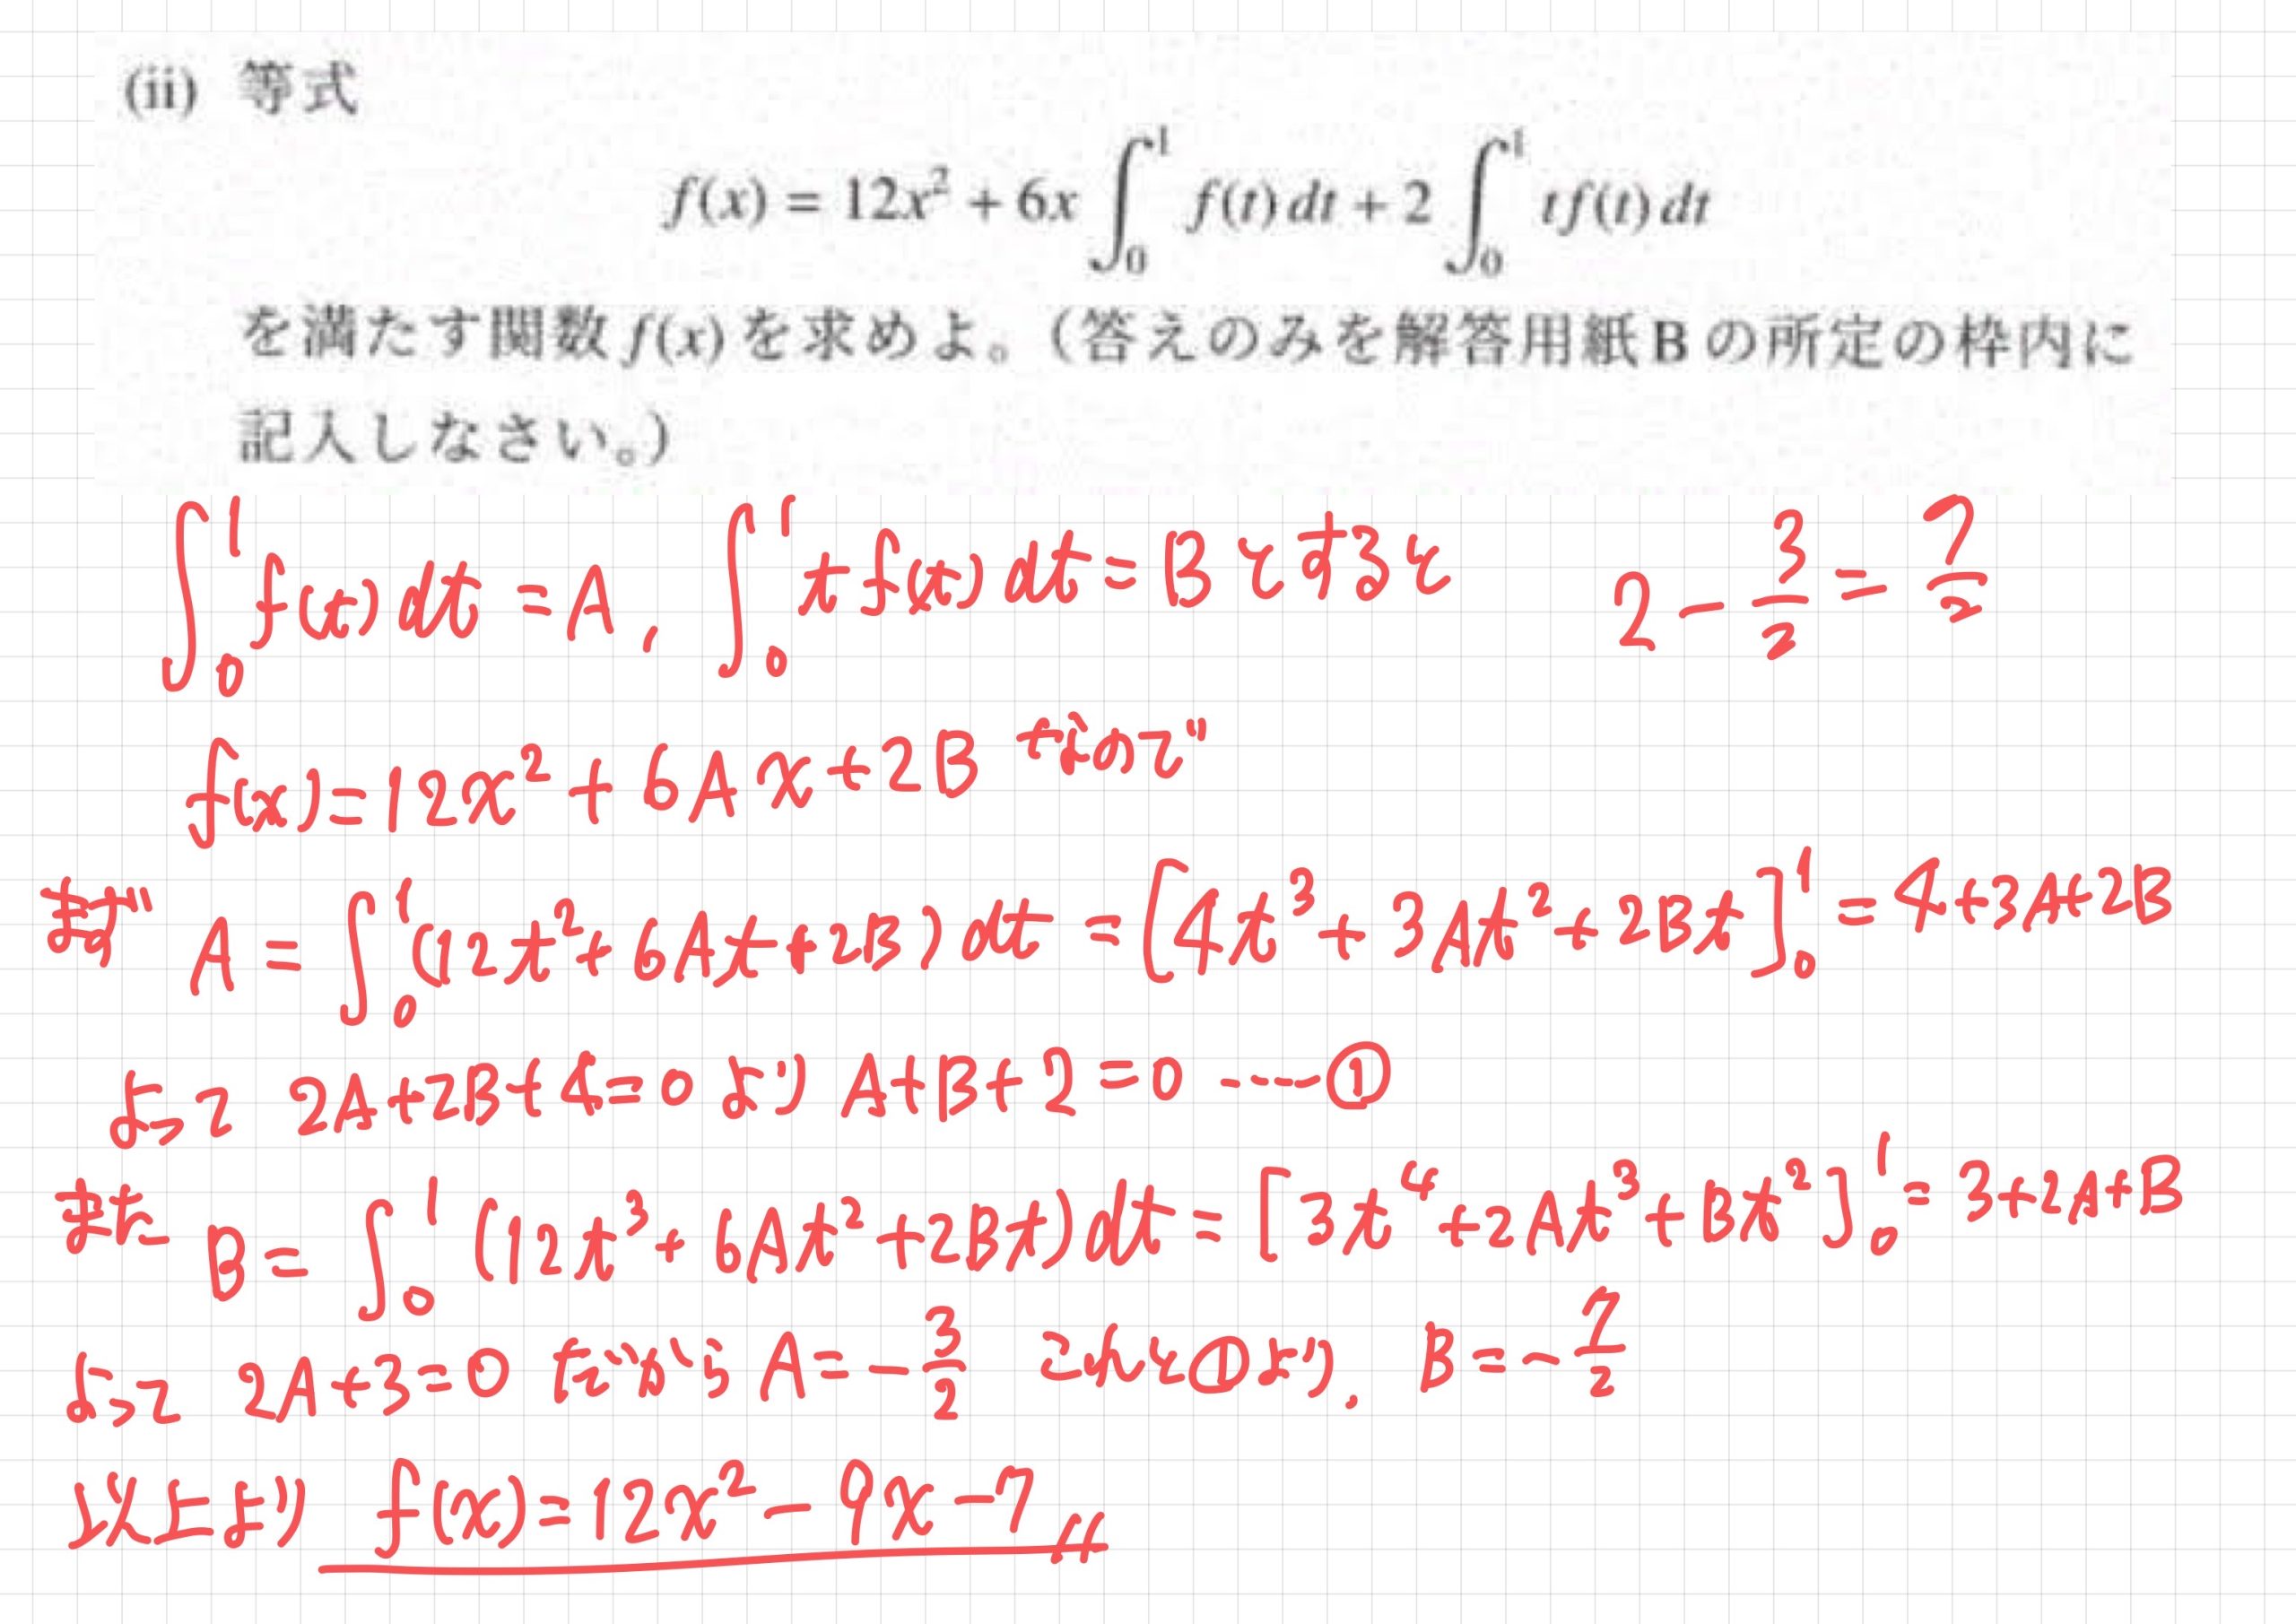 (ii) 等式
f(x) = 12x² + 6x ∫₀¹ f(t) dt + 2 ∫₀¹ t f(t) dt
を満たす関数 f(x) を求めよ。(答えのみを解答用紙 B の所定の枠内に
記入しなさい。)
∫₀¹ f(t) dt = A, ∫₀¹ t f(t) dt = B とすると 2 - 3/2 = 7/2
f(x) = 12x² + 6Ax + 2B なので
まず A = ∫₀¹ (12t² + 6At + 2B) dt = [4t³ + 3At² + 2Bt]₀¹ = 4 + 3A + 2B
よって 2A + 2B + 4 = 0 より A + B + 2 = 0 ---- ①
また B = ∫₀¹ (12t³ + 6At² + 2Bt) dt = [3t⁴ + 2At³ + Bt²]₀¹ = 3 + 2A + B
よって 2A + 3 = 0 だから A = - 3/2 これと①より, B = - 7/2
以上より f(x) = 12x² - 9x - 7 〃